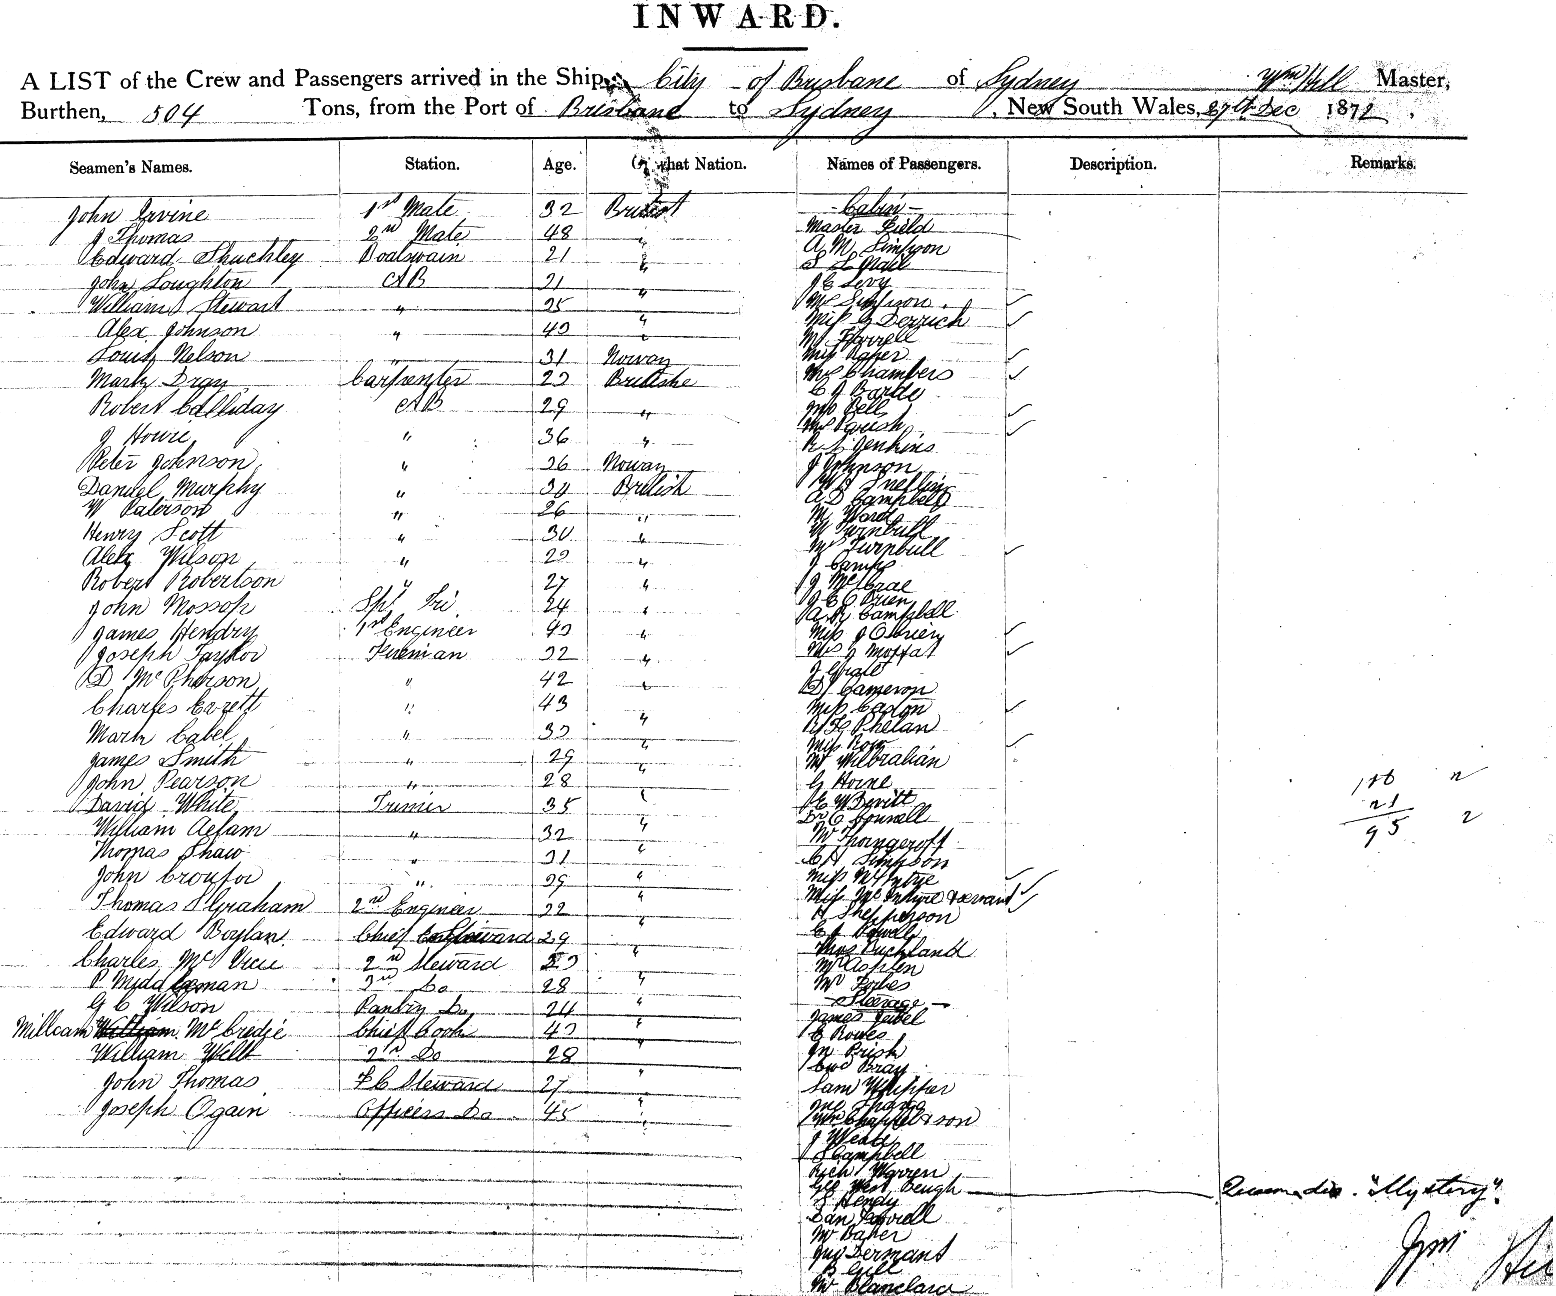 INWARD.
A LIST of the Crew and Passengers arrived in the Ship City of Brisbane of Sydney Wm Hill Master,
Burthen, 504 Tons, from the Port of Brisbane to Sydney, New South Wales, 27th Dec 1872.
Seamen's Names. Station. Age. Of what Nation. Names of Passengers. Description. Remarks.
John Irvine 1st Mate 32
J Thomas 2nd Mate 48 "
Edward Shuckley Boatswain 21 "
John Loughton AB 21 "
William Stewart " 25 "
Alex Johnson " 40 "
Louis Nelson " 31 Norway
Mark Dray Carpenter
Robert Calliday AB 29 "
J Howie " 36 "
Peter Johnson " 26 Noway
Daniel Murphy " 30 British
W Paterson " 26 "
Henry Scott " 30 "
Alex Wilson "
Robert Robertson " 27 "
John Mossop 24 "
James Hendry 1st Engineer 40 "
Joseph Taylor Fireman 32 "
D McPherson " 42 "
Charles Evzett " 43 "
Mark Cabel " 30 "
James Smith " 29 "
John Pearson " 28 "
David White Trimer 35 "
William Aefam " 32 "
Thomas Shaw " 21 "
John " 29 "
Thomas Graham 2nd Engineer 22 "
Edward Boylan Chief Steward 29 "
Charles 2nd Steward "
P Middleman 3rd Do 28 "
G C Wilson Pantry Do 24 "
William McCredie Chief Cook 40 "
William Welt 2nd Do 28 "
John Thomas F C Steward 27 "
Joseph Ogain Officers Do 45 "
- Cabin -
Master Field
A M Simpson
S L Nail
J E Levy
Mrs Simpson
Miss G Derrich
Mr Horrell
Miss Raper
Mrs Chambers
C J Bartle
Mrs Bell
Mrs Parish
R S Jenkins
J Johnson
Snelling
A D Campbell
Mr Ward
W Turnbull
Mrs Turnbull
J Camps
J McCrae
J E O Brien
A R Campbell
Miss J O brien
Mrs J Moffat
J Grait
D Cameron
Miss Caston
R F G Phelan
Miss Row
Mr Wilbrahan
G Horne
E W Devitt
Dr O Connell
Mr Thorngeroft
C H Simpson
Miss McIntye
Miss McIntyre & servant
H Shepperson
C J Powell
Thos Buckland
Mr Asplen
Mr Forbes
- Steerage -
James
E Rowes
Jn Prish
Bray
Sam Whipper
Wm Chappel & son
J Weate
S Campbell
Rich Warren
Geo West
Beugh
S Hendy
Dan
Mr Baker
Jno Dermant
B Gill
Mr Blanclard
116 n
21
95 2
"Mystery".
Wm